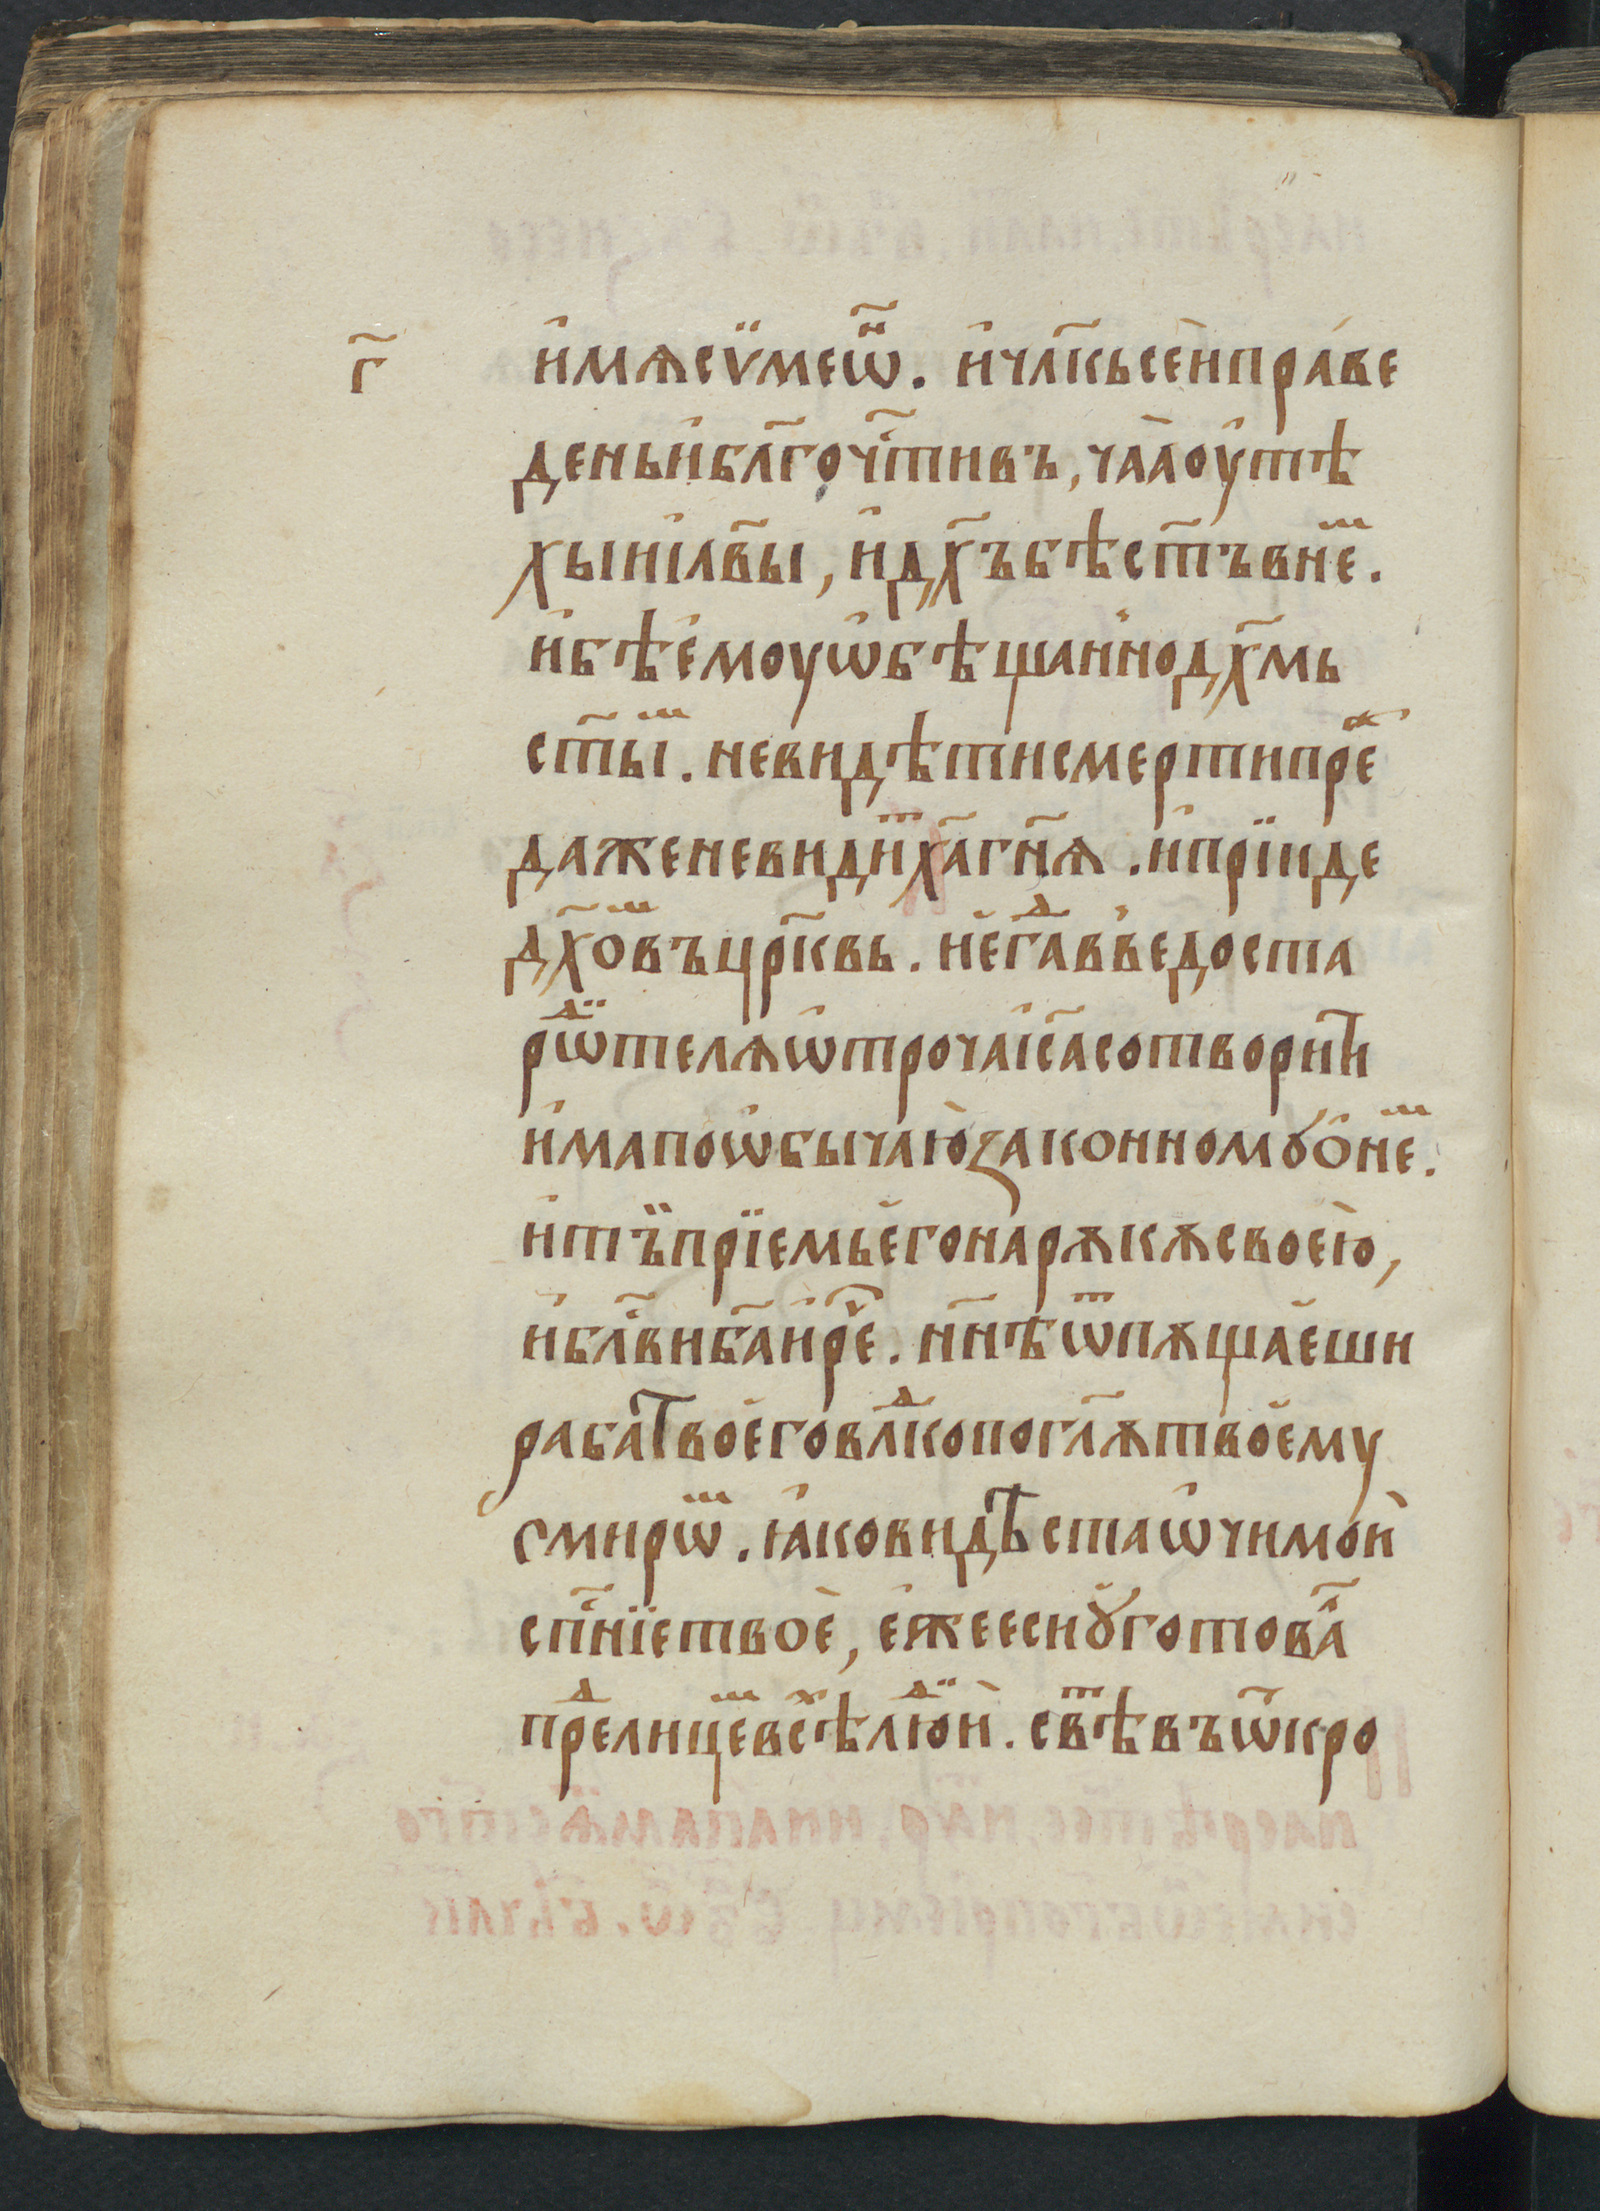 г҃
и҆мѧсѵ̈меѡ҃ⷩ. и҆чл҃кьсе́ипра́ве
дены̀и҆бл҃гочⷭ҇тивъ, ча́аоу҆тѣ
хы̀иі҆л҃вы, и҆дх҃ъбѣст҃ъвнеⷨ.
и҆бѣе҆моуѡ҆бѣщаннодх҃мь
ст҃ыиⷨ. невидѣтисмертипреⷤ
даженевидиⷮх҃агн҃ѧ. и҆прїиде
дх҃оⷨвъцр҃квь. и҆е҆гⷣав̾ведоста
рⷣѡ҆телѧѡ҆трочаі҆с҃асотворити
и҆мапоѡ҆бычаю҆законномꙋѡ҆неⷨ.
и҆тъ̈прїемье҆гонарѫкѫсвоею̀,
и҆бл҃вибг҃аи҆реⷱ. нн҃ѣѿпѫща́еши
рабатвое҆говлⷣкопогл҃ѫтвое҆му
смирѡⷨ. ꙗ҆ковидѣстаѡ҆чимои҆
сп҃нїетвое̑, е҆жееси꙼ꙋготоваⷧ
преⷣлицеⷨвсѣⷯлюⷣи̑. свⷮѣвъѿкро